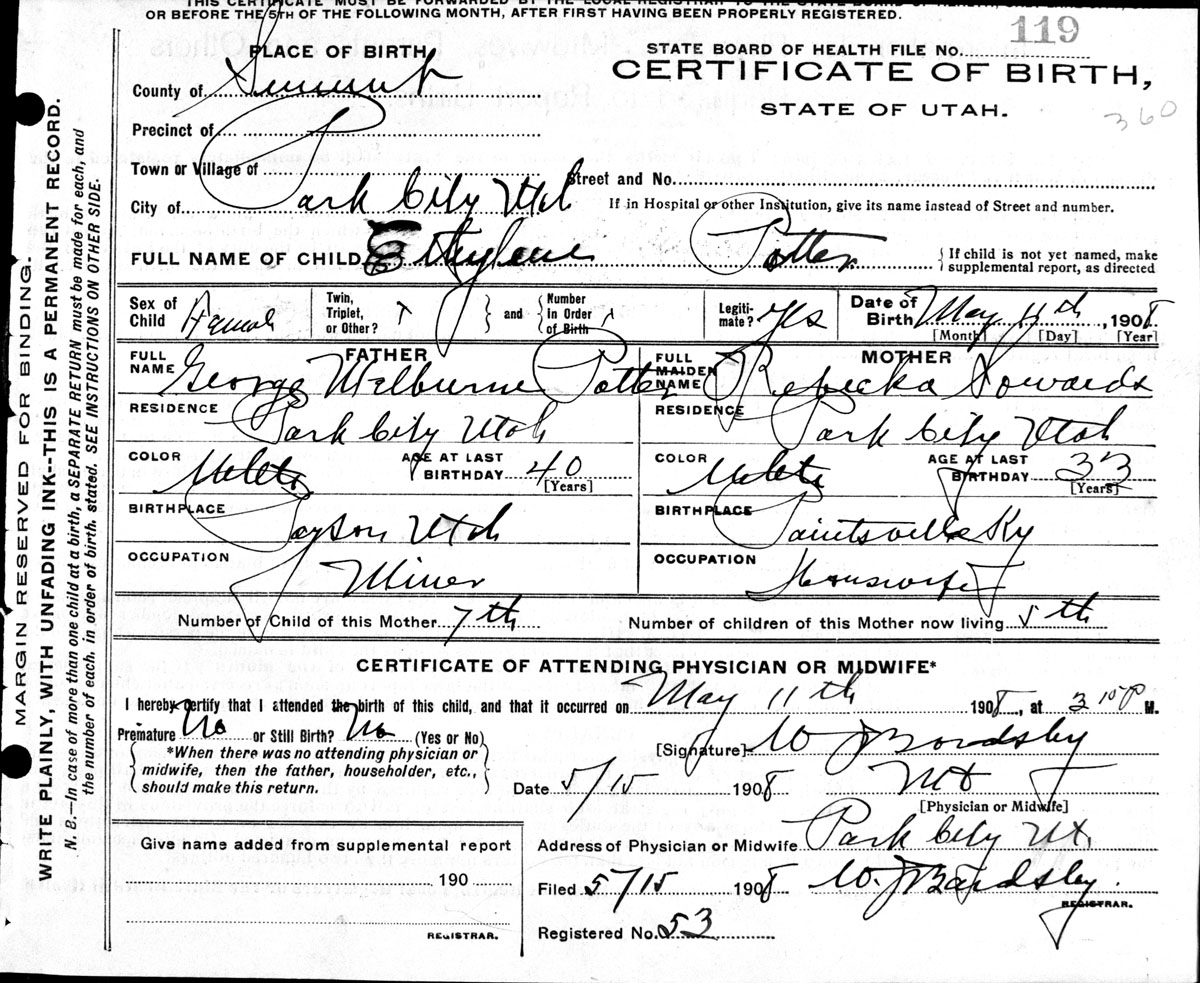 THIS CERTIFICATE MUST BE FORWARDED BY THE LOCAL REGISTRAR TO THE STATE BOARD OF HEALTH
OR BEFORE THE 5TH OF THE FOLLOWING MONTH, AFTER FIRST HAVING BEEN PROPERLY REGISTERED.
PLACE OF BIRTH
STATE BOARD OF HEALTH FILE No. 119
CERTIFICATE OF BIRTH,
STATE OF UTAH.
360
County of Summit
Precinct of
Town or Village of
Street and No.
City of Park City Utah
If in Hospital or other Institution, give its name instead of Street and number.
FULL NAME OF CHILD Ethylene Potter
{ If child is not yet named, make supplemental report, as directed
Sex of Child Female
Twin, Triplet, or Other?
and
Number in Order of Birth
Legitimate? Yes
Date of Birth May 11th, 1908
[Month] [Day] [Year]
FATHER
FULL NAME George Melburne Potter
RESIDENCE Park City Utah
COLOR White
AGE AT LAST BIRTHDAY 40
[Years]
BIRTHPLACE Payson Utah
OCCUPATION Miner
MOTHER
FULL MAIDEN NAME Rebecka Sowards
RESIDENCE Park City Utah
COLOR White
AGE AT LAST BIRTHDAY 33
[Years]
BIRTHPLACE Paintsville Ky
OCCUPATION Housewife
Number of Child of this Mother 7th
Number of children of this Mother now living 5th
CERTIFICATE OF ATTENDING PHYSICIAN OR MIDWIFE*
I hereby certify that I attended the birth of this child, and that it occurred on May 11th 1908, at 3 15 P M.
Premature No or Still Birth? No (Yes or No)
{ *When there was no attending physician or
midwife, then the father, householder, etc.,
should make this return. }
[Signature] W J Bardsley
Date 5/15 1908 MD
[Physician or Midwife]
Give name added from supplemental report
190
REGISTRAR.
Address of Physician or Midwife Park City Ut.
Filed 5/15 1908 W. J Bardsley.
REGISTRAR.
Registered No. 53
MARGIN RESERVED FOR BINDING.
WRITE PLAINLY, WITH UNFADING INK--THIS IS A PERMANENT RECORD.
N. B.—In case of more than one child at a birth, a SEPARATE RETURN must be made for each, and
the number of each, in order of birth, stated. SEE INSTRUCTIONS ON OTHER SIDE.